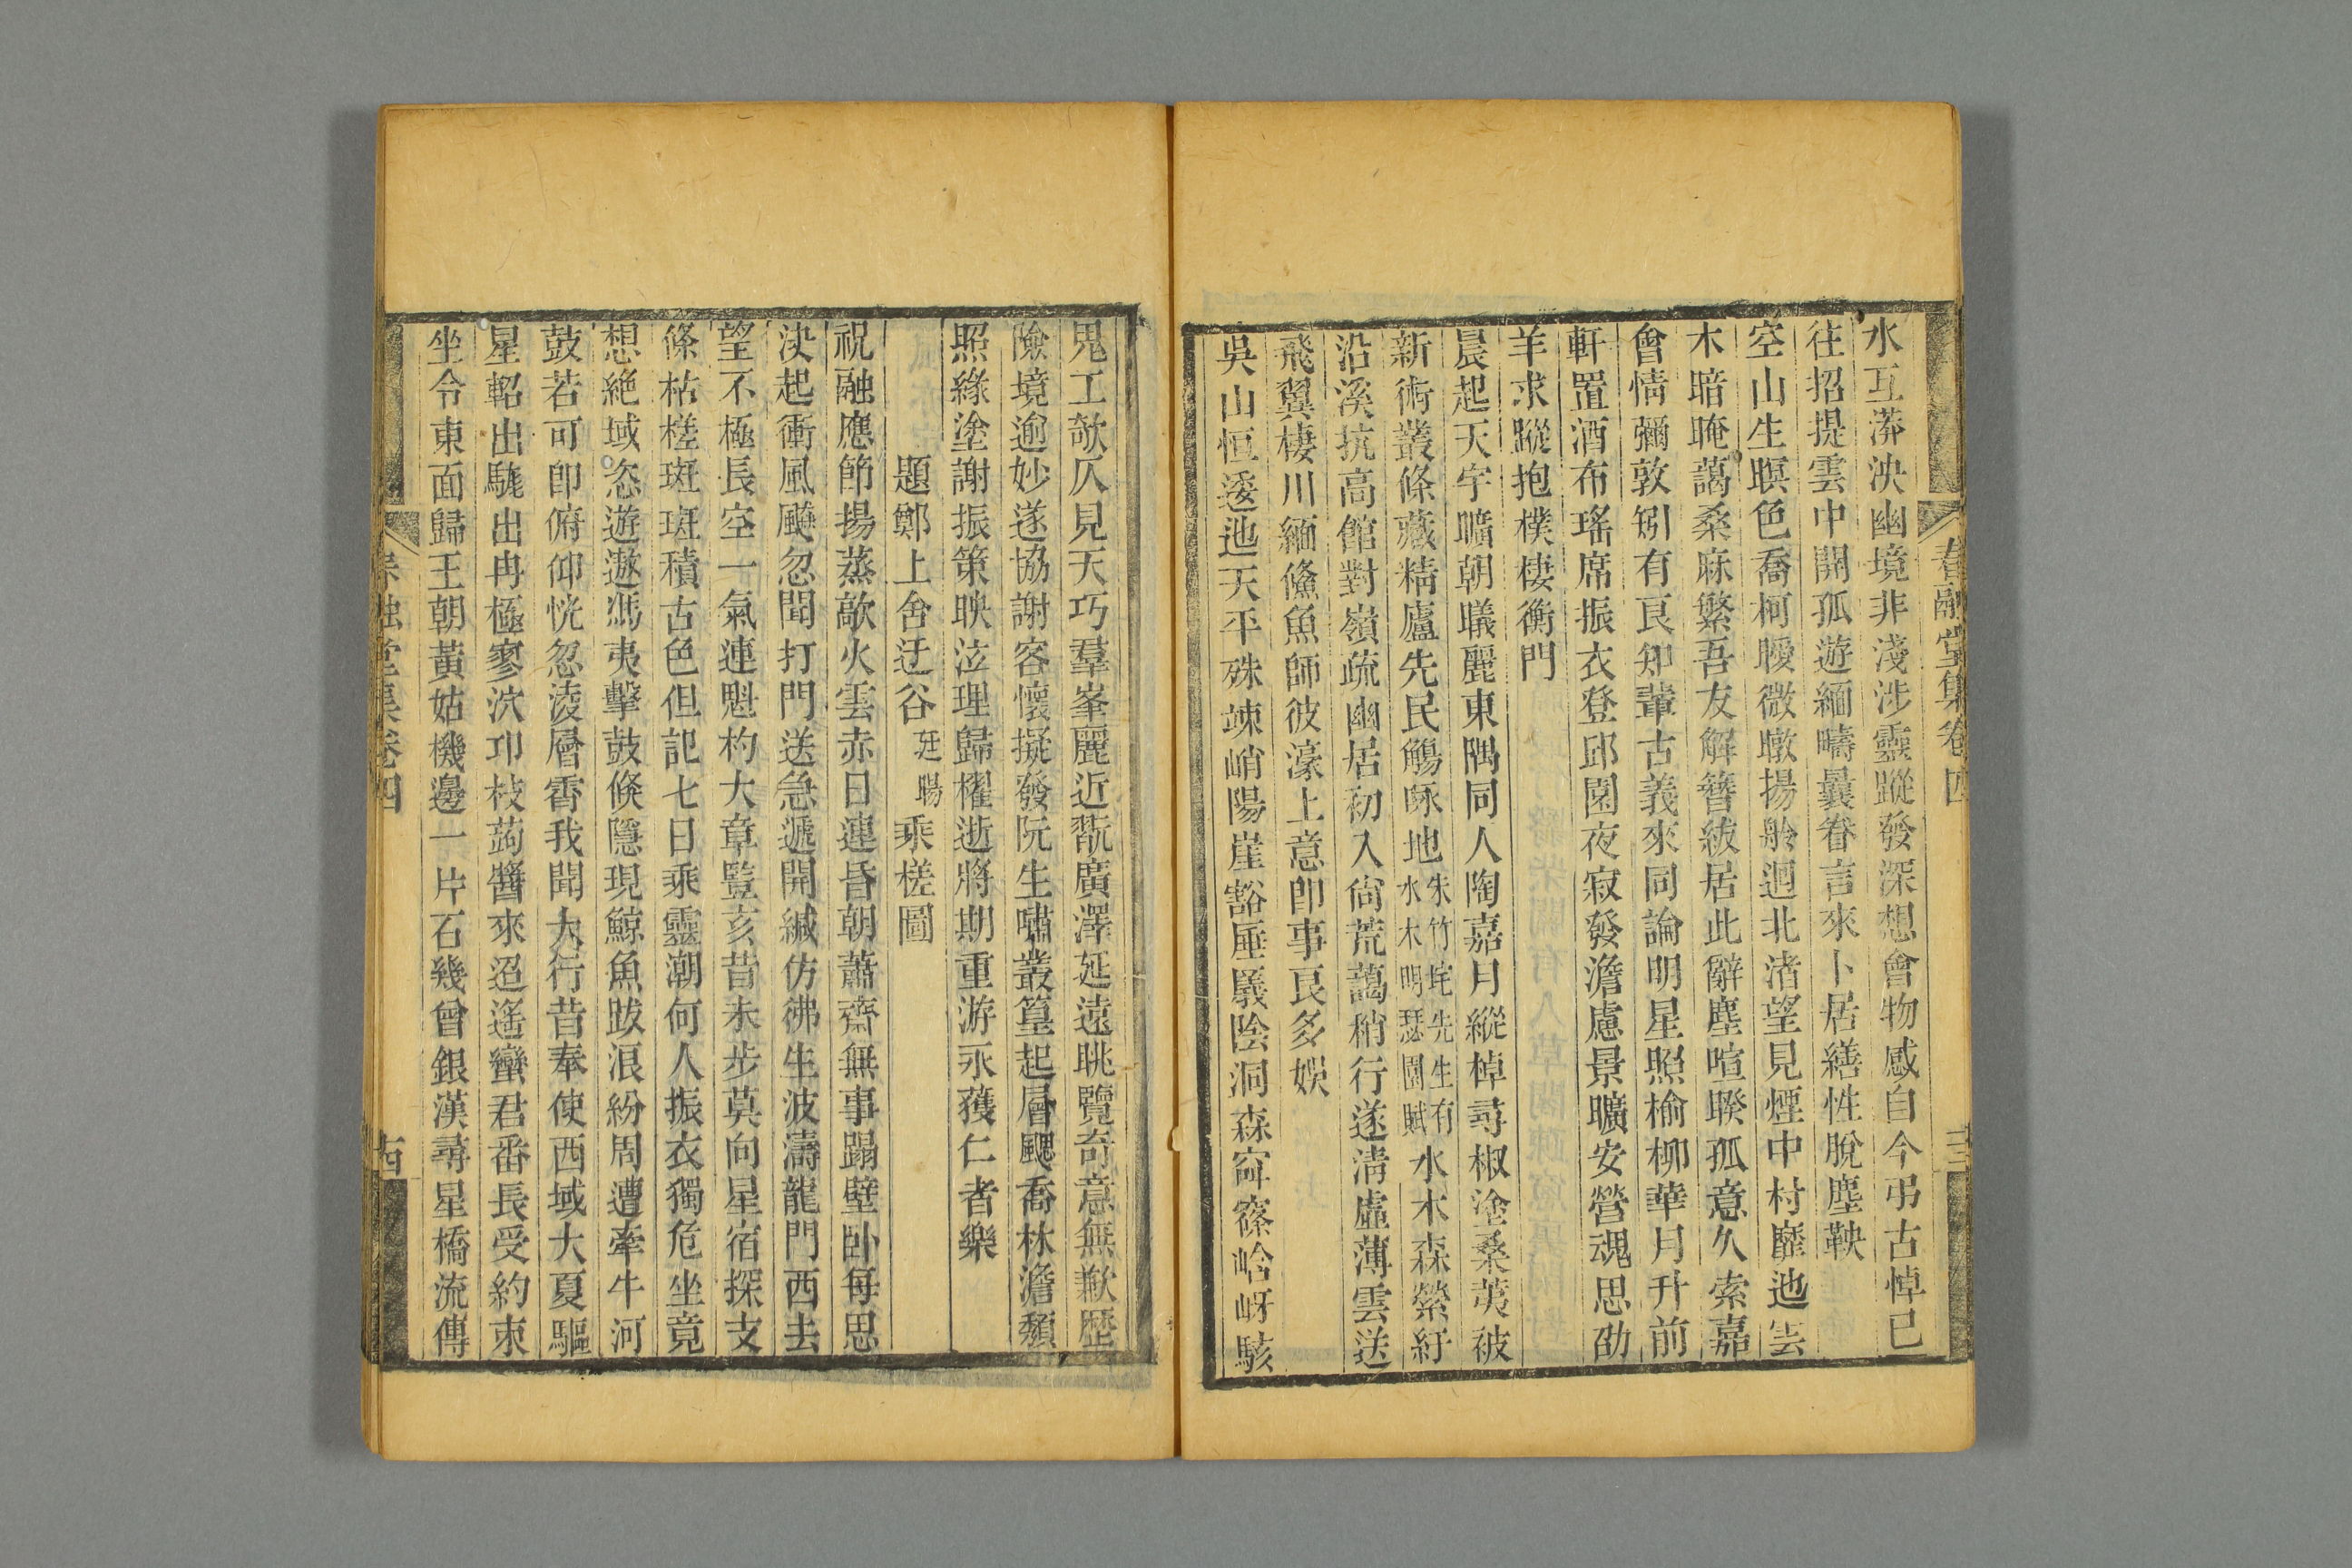 春融堂集卷四
水互漭泱幽境非淺涉靈蹤發深想會物感自今弔古悼已
往招提雲中開孤遊緬疇曩眷言來卜居繕性脫塵鞅
空山生暝色喬柯曖微暾揚舲迴北渚望見煙中村廳迆雲
木暗晻藹桑麻繁吾友解簪紱居此辭塵喧睽孤意久索嘉
會情彌敦矧有良知輩古義來同論明星照榆柳華月升前
軒置酒布瑤席振衣登邱園夜寂發澹慮景曠安營魂思劭
羊求蹤抱樸棲衡門
晨起天宇曠朝曦麗東隅同人陶嘉月縱棹尋椒塗桑荑被
新術叢條藏精廬先民觴咏地朱竹垞先生有水木明瑟園賦水木森縈紆
沿溪抗高館對嶺疏幽居初入尙荒藹稍行遂淸虛薄雲送
飛翼棲川緬鯈魚師彼濠上意卽事良多娛
吳山恒逶迆天平殊竦峭陽崖豁厓㕒陰洞森窅窱㟏岈駭
鬼工欹仄見天巧羣峯麗近翫廣澤延遠眺覽奇意無歉歴
險境逾妙遂協謝客懷擬發阮生嘯叢篁起層颸喬林澹頹
照緣塗謝振策映泣理歸櫂逝將期重游永獲仁者樂
題鄭上舍迂谷廷暘乘槎圖
祝融應節揚蒸歊火雲赤日連昏朝蕭齋無事蹋壁臥每思
決起衝風飈忽聞打門送急遞開緘仿彿生波濤龍門西去
望不極長空一氣連魁杓大章豎亥昔未步莫向星宿探支
條枯槎斑斑積古色但記七日乘靈潮何人振衣獨危坐竟
想絶域恣遊遨馮夷擊鼓倏隱現鯨魚跋浪紛周遭牽牛河
鼓若可卽俯仰恍忽淩層霄我聞大行昔奉使西域大夏驅
星軺出駹出冉極寥泬邛枝蒟醬來迢遙蠻君番長受約束
坐令東面歸王朝黃姑機邊一片石幾曾銀漢尋星橋流傳
春融堂集卷四